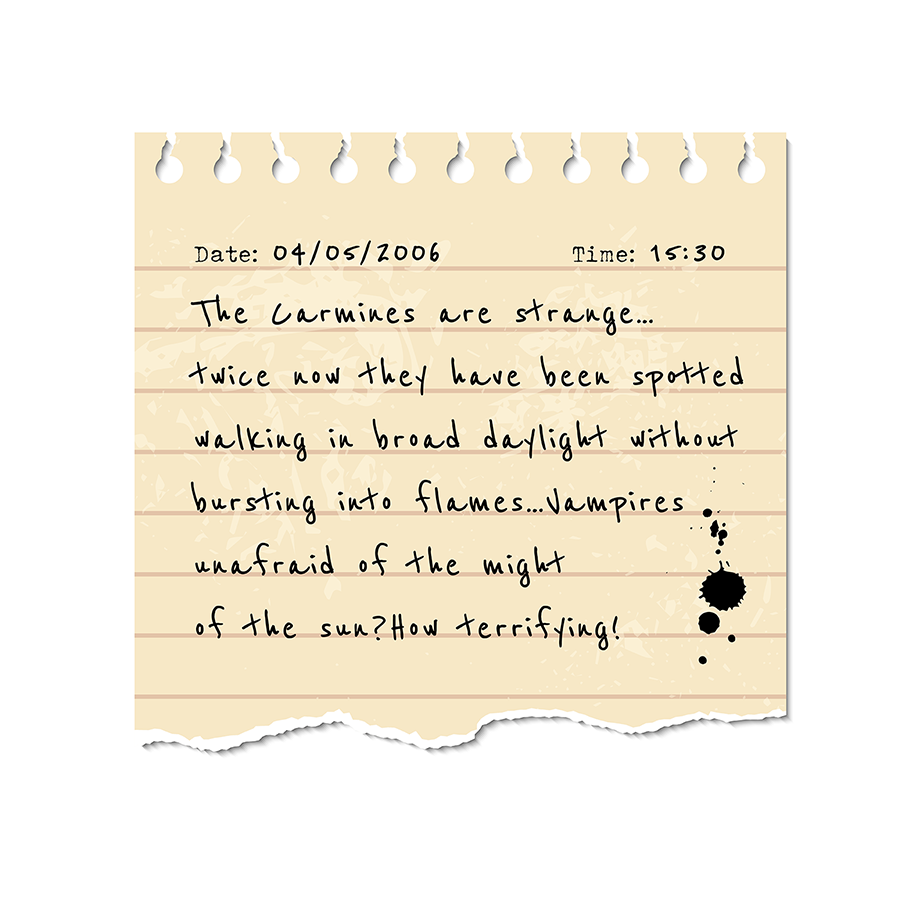 Date: 04/05/2006 Time: 15:30
The Carmines are strange...
twice now they have been spotted
walking in broad daylight without
bursting into flames...Vampires
unafraid of the might
of the sun?How terrifying!